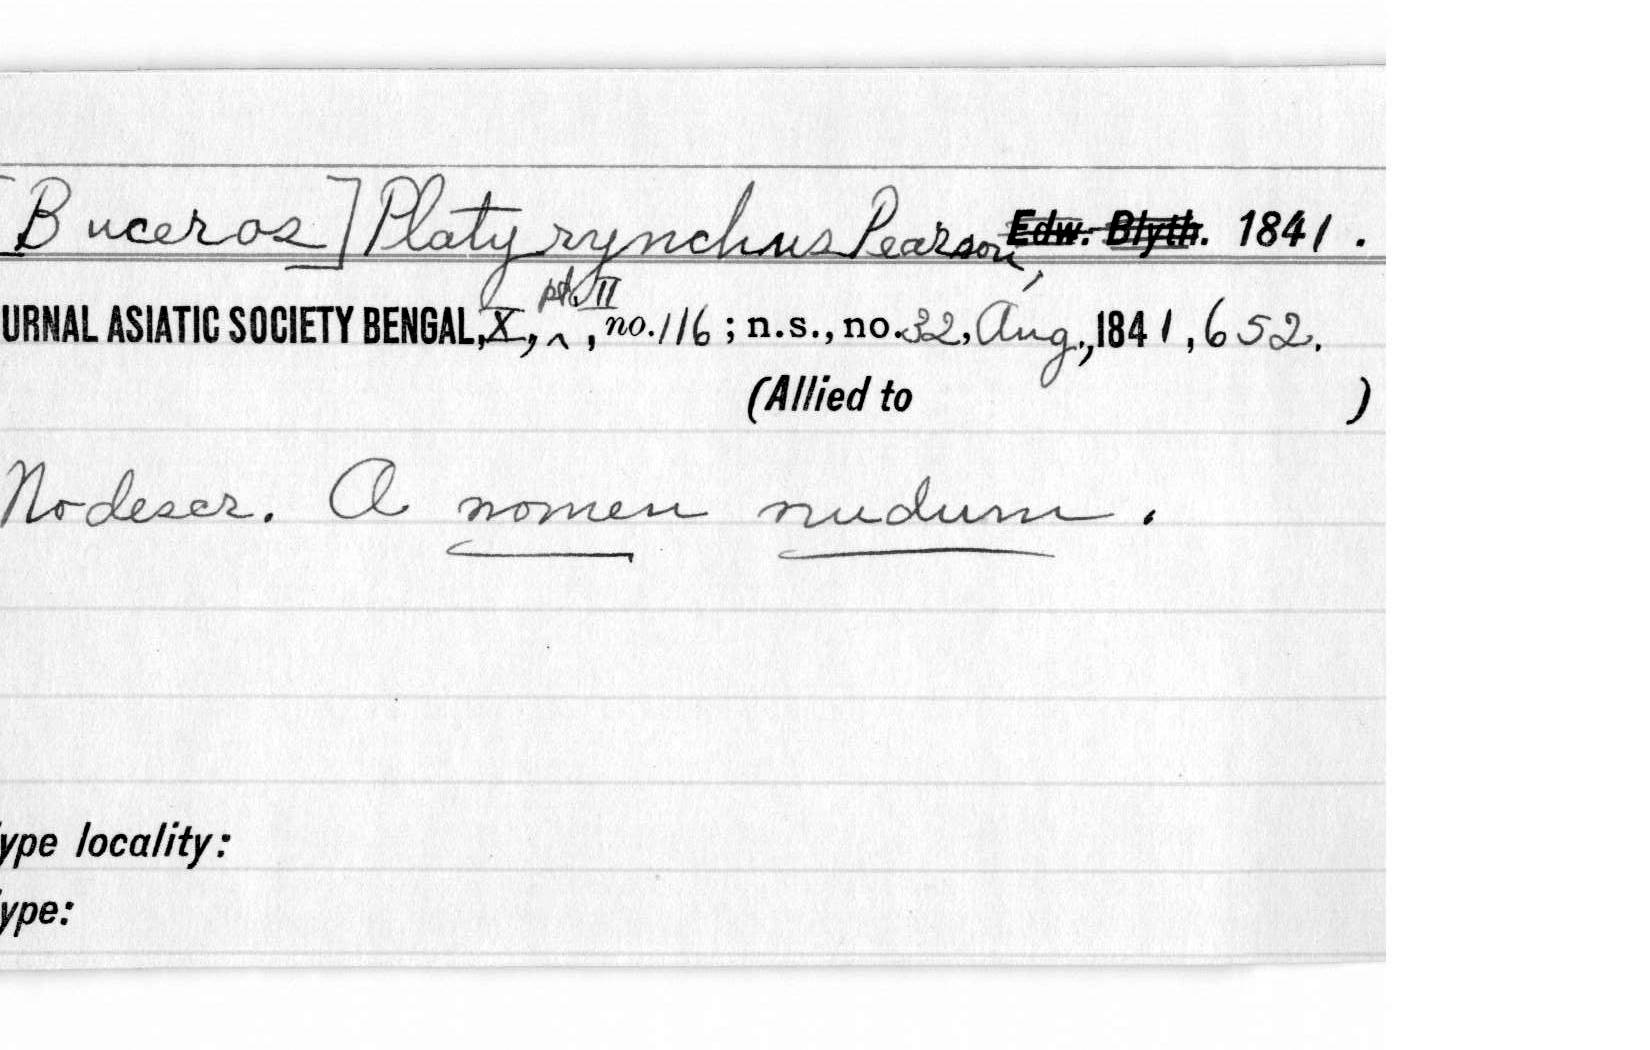 [Buceros] Platyrynchus Pearson, Edw. Blyth. 1841.
URNAL ASIATIC SOCIETY BENGAL, X, pt. II, no. 116; n.s., no. 32, Aug., 1841, 652.
(Allied to )
No descr. A nomen nudum.
ype locality:
ype: